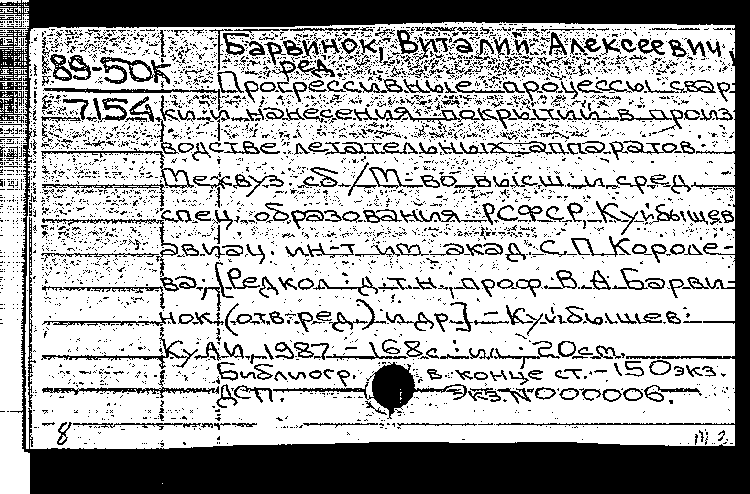 Барвинок, Виталий Алексеевич,
89-50к ред.
Прогрессивные процессы свар-
7154 ки и нанесения покрытий в произ-
водстве летательных аппаратов.
Межвуз. сб / М-во высш. и сред.
спец. образования РСФСР, Куйбышев.
авиац. ин-т им. акад. С.П. Короле-
ва; [Редкол.: д.т.н., проф. В.А. Барви-
нок (отв. ред.) и др]. - Куйбышев:
КуАИ, 1987. - 168с.: ил.; 20см.
Библиогр. в конце ст. - 150экз.
ДСП. Экз.N000006.
8